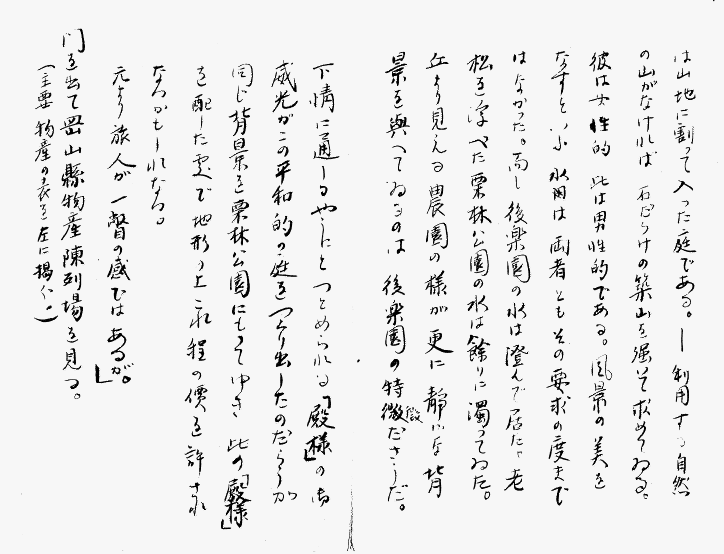 は山地に割って入った庭である。―利用する自然
の山がなければ 石だらけの築山を強いて求めてゐる。
彼は女性的 此は男性的である。風景の美を
なすといふ水は両者ともその要求の度まで
はなかった。而し後楽園の水は澄んで居た。老
松を浮べた栗林公園の水は餘りに濁ってゐた。
丘より見える農園の様が更に静かな背
景を與へてゐるのは 後楽園の特徴ださうだ。
下情に通じるやうにとつとめられる「殿様」の御
威光がこの平和的の庭をつくり出したのだらうが
同じ背景を栗林公園にもってゆき 此の「殿様」
を配した處で地形の上これ程の價を許され
なるかもしれなる。
元より旅人が一瞥の感ではあるが。」
門を出て岡山縣物産陳列場を見る。
(主要物産の表を左に掲ぐ)